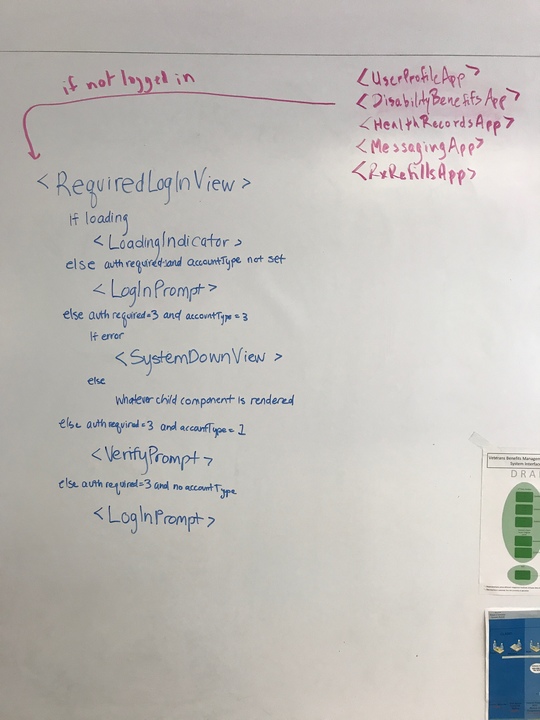 if not logged in
<UserProfileApp>
<DisabilityBenefitsApp>
<HealthRecordsApp>
<MessagingApp>
<RxRefillsApp>
<RequiredLogInView>
If loading
<LoadingIndicator>
else auth required=1 and accountType not set
<LogInPrompt>
else auth required=3 and accountType=3
If error
<SystemDownView>
else
Whatever child component is rendered
else auth required=3 and accountType=1
<VerifyPrompt>
else auth required=3 and no accountType
<LogInPrompt>
Veterans Benefits Manage
System Interface
DRA